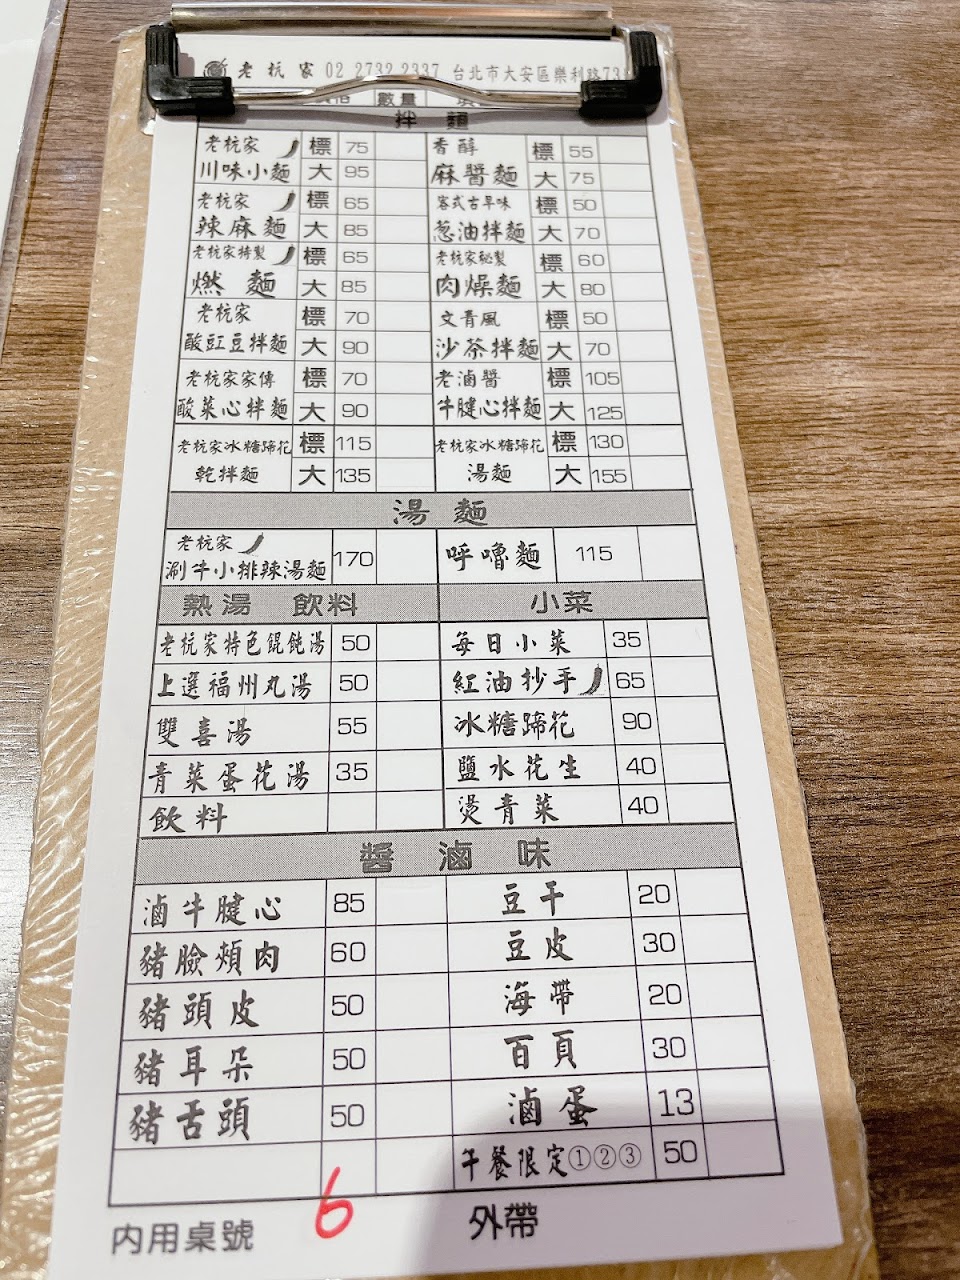 老杬家 02 2732 2337 台北市大安區樂利路73
數量
拌 麵
老杬家 標 75 香醇 標 55
川味小麵 大 95 麻醬麵 大 75
老杬家 標 65 客式古早味 標 50
辣麻麵 大 85 葱油拌麵 大 70
老杬家特製 標 65 老杬家秘製 標 60
燃麵 大 85 肉燥麵 大 80
老杬家 標 70 文青風 標 50
酸豇豆拌麵 大 90 沙茶拌麵 大 70
老杬家家傳 標 70 老滷醬 標 105
酸菜心拌麵 大 90 牛腱心拌麵 大 125
老杬家冰糖蹄花 標 115 老杬家冰糖蹄花 標 130
乾拌麵 大 135 湯麵 大 155
湯 麵
老杬家
涮牛小排辣湯麵 170 呼嚕麵 115
熱湯 飲料 小菜
老杬家特色餛飩湯 50 每日小菜 35
上選福州丸湯 50 紅油抄手 65
雙喜湯 55 冰糖蹄花 90
青菜蛋花湯 35 鹽水花生 40
飲料 燙青菜 40
醬 滷 味
滷牛腱心 85 豆干 20
豬臉頰肉 60 豆皮 30
豬頭皮 50 海帶 20
豬耳朵 50 百頁 30
豬舌頭 50 滷蛋 13
午餐限定①②③ 50
內用桌號 6 外帶